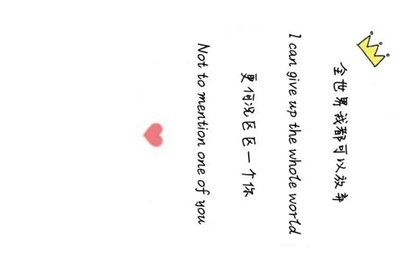 全世界我都可以放弃
I can give up the whole world
更何况区区一个你
Not to mention one of you